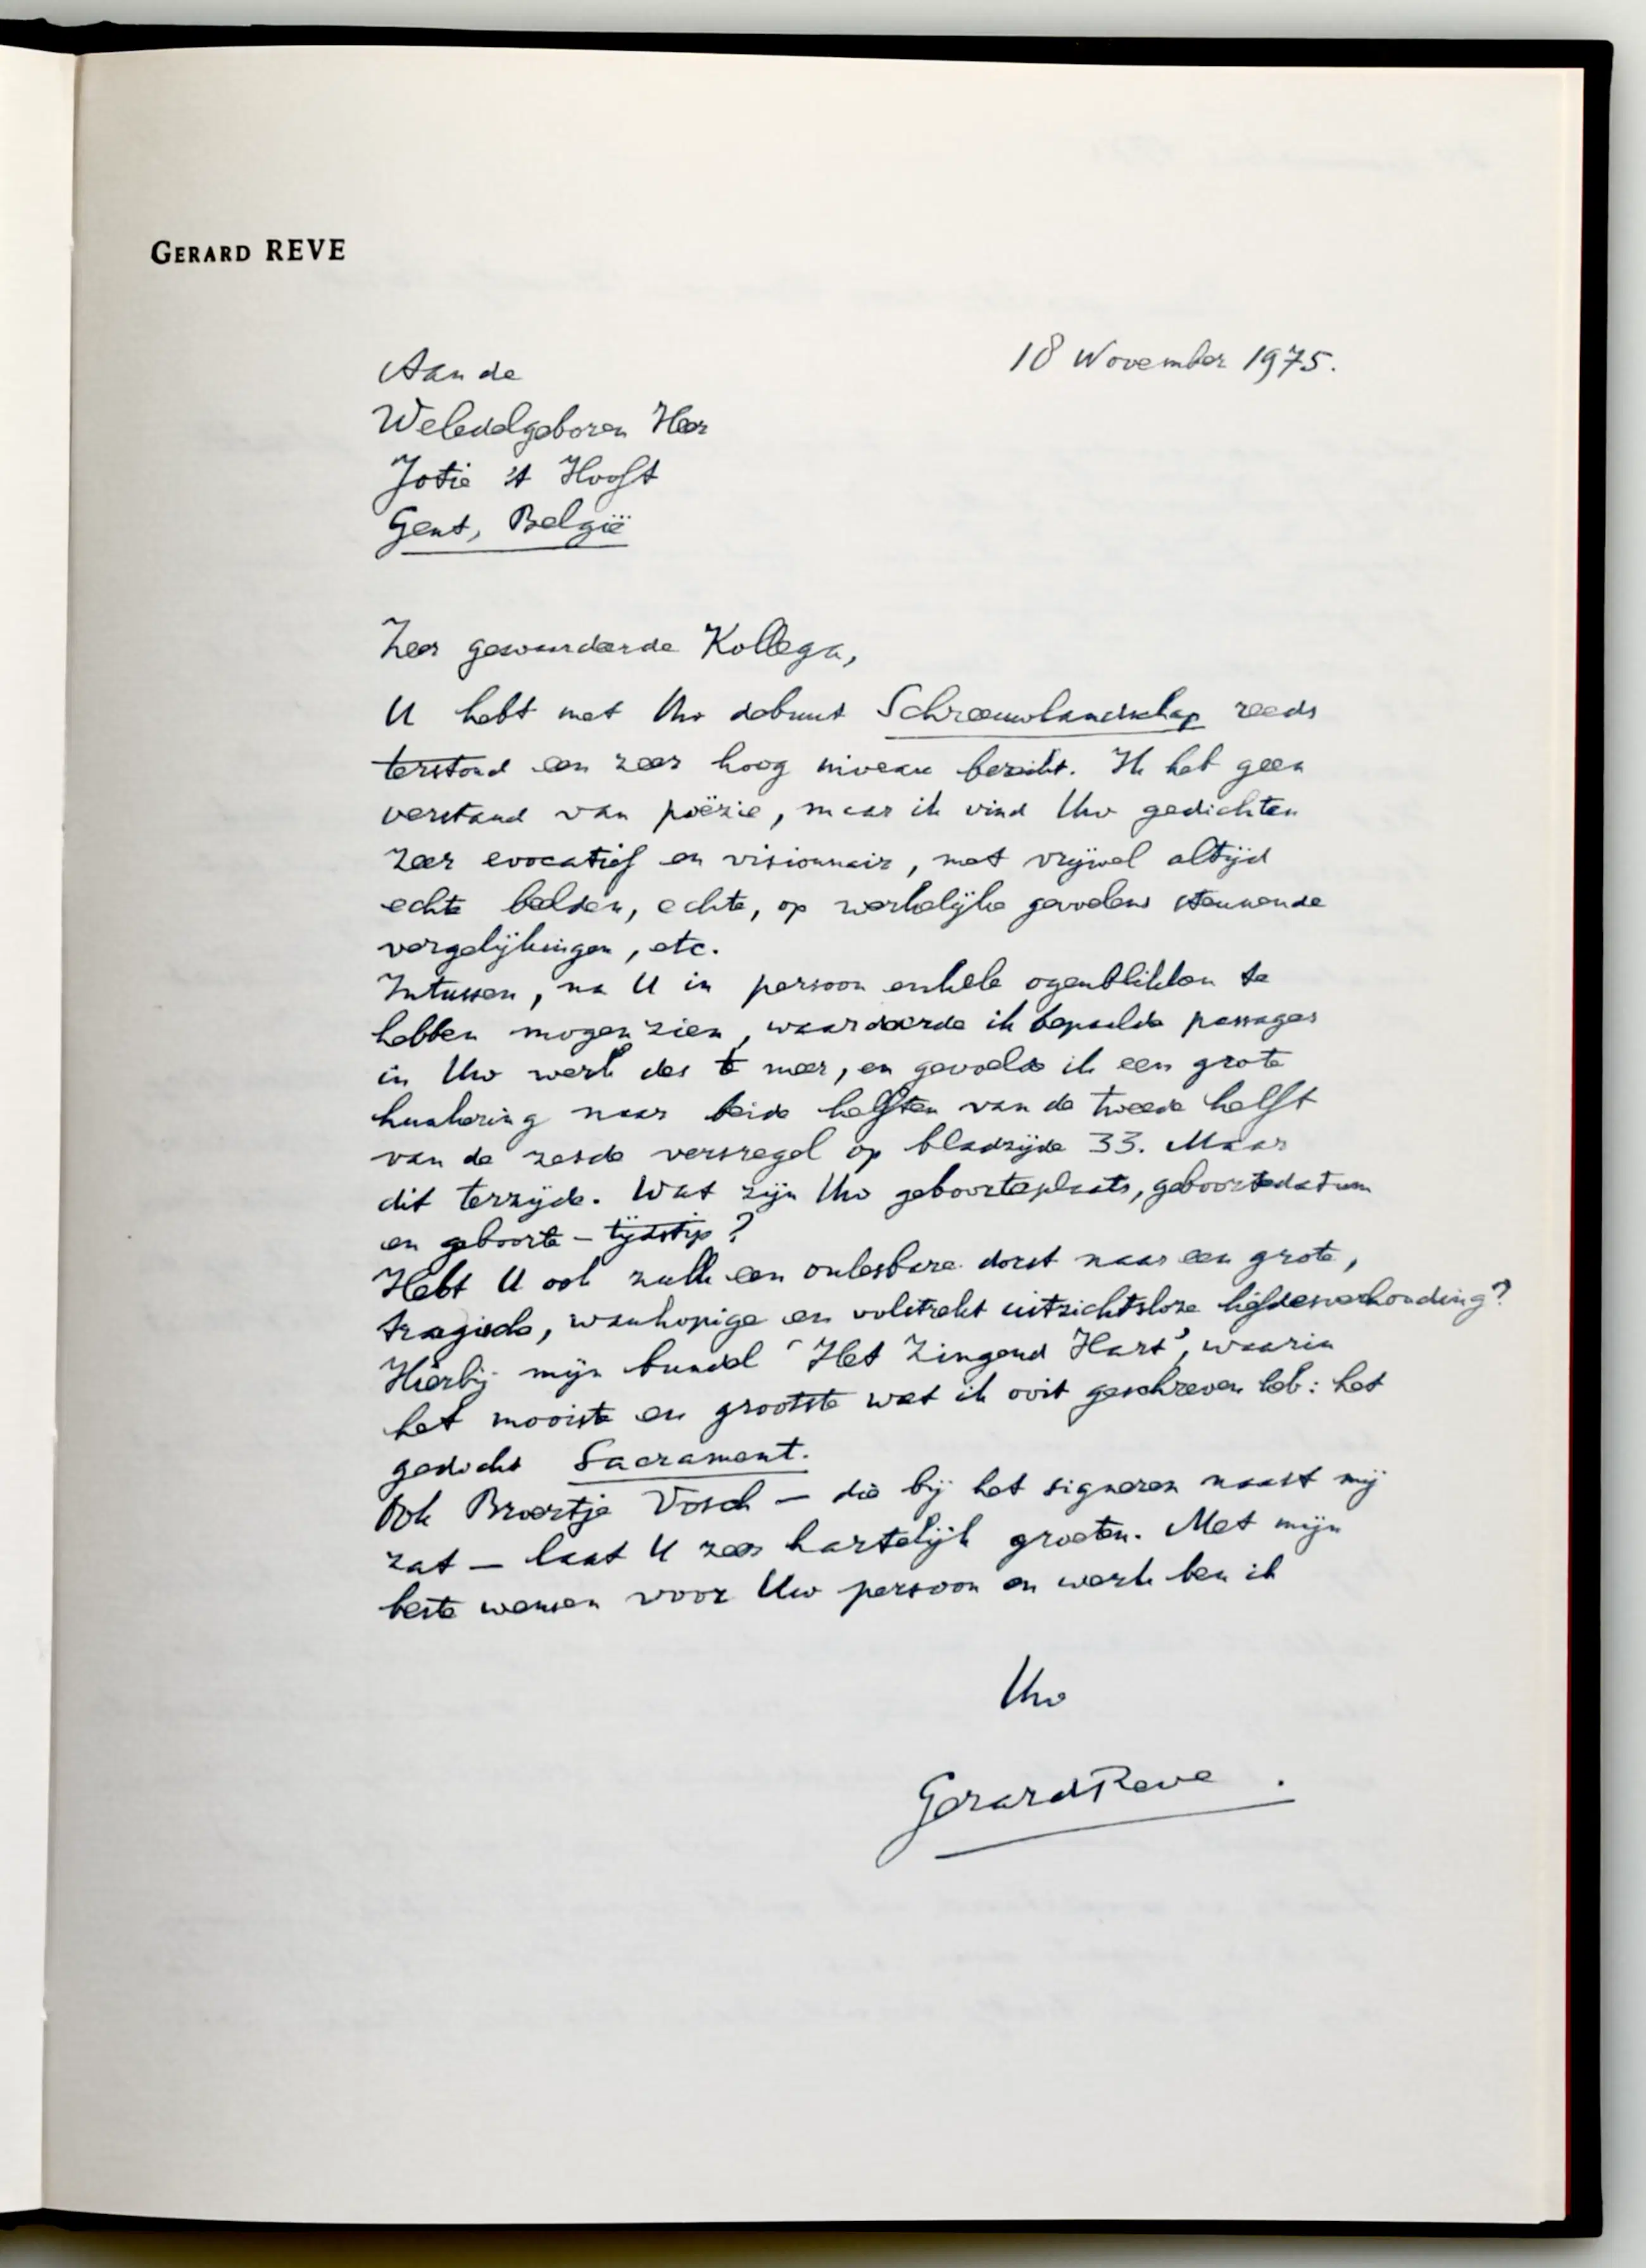 GERARD REVE
18 November 1975.
Aan de
Weledelgeboren Heer
Jotie 't Hooft
Gent, België
Zeer gewaardeerde Kollega,
U hebt met Uw debuut Schreeuwlandschap reeds
terstond een zeer hoog niveau bereikt. Ik heb geen
verstand van poëzie, maar ik vind Uw gedichten
zeer evocatief en visionnair, met vrijwel altijd
echte beelden, echte, op werkelijke gevoelens steunende
vergelijkingen, etc.
Intussen, na U in persoon enkele ogenblikken te
hebben mogen zien, waardeerde ik bepaalde passages
in Uw werk des te meer, en gevoelde ik een grote
hunkering naar beide helften van de tweede helft
van de zesde versregel op bladzijde 33. Maar
dit terzijde. Wat zijn Uw geboorteplaats, geboortedatum
en geboorte-tijdstip?
Hebt U ook zulk een onlesbare dorst naar een grote,
tragiede, wanhopige en volstrekt uitzichtsloze liefdesverhouding?
Hierbij mijn bundel 'Het Zingend Hart', waarin
het mooiste en grootste wat ik ooit geschreven heb: het
gedicht Sacrament.
Ook Broertje Vosch — die bij het signeren naast mij
zat — laat U zeer hartelijk groeten. Met mijn
beste wensen voor Uw persoon en werk ben ik
Uw
Gerard Reve.